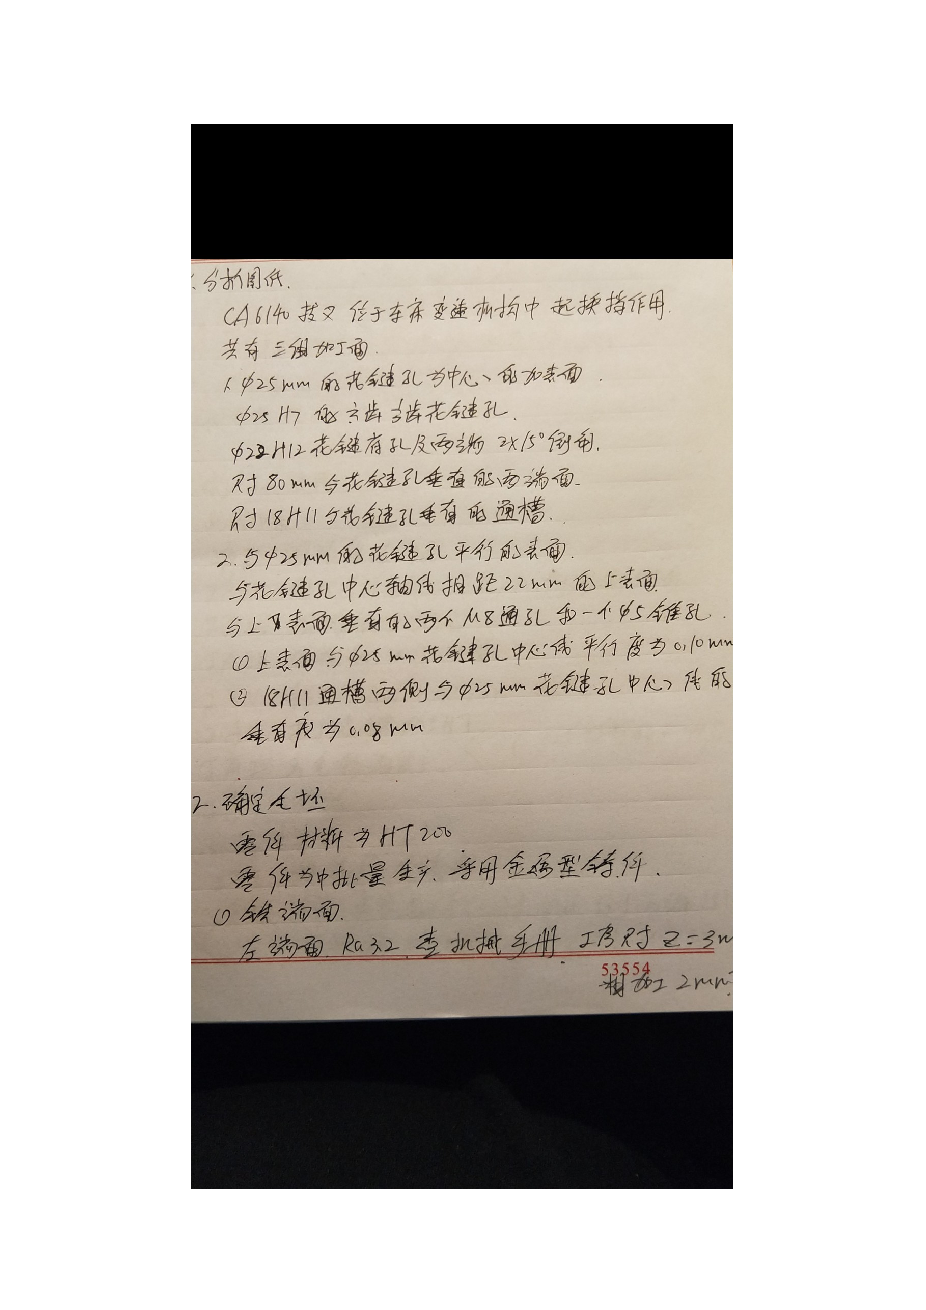 1.分析图纸.
CA6140 拨叉 位于车床变速机构中 起换挡作用.
共有三组加工面.
1. φ25mm的花键孔为中心的加表面.
φ25H7的六齿方齿花键孔.
φ22H12花键底孔及两端 2×15°倒角.
尺寸80mm与花键孔垂直的两端面.
尺寸18H11与花键孔垂直的通槽.
2.与φ25mm的花键孔平行的表面.
与花键孔中心轴线相距22mm的上表面
与上表面垂直的两个M8通孔和一个φ5锥孔.
① 上表面与φ25mm花键孔中心线平行度为0.10mm
② 18H11通槽两侧与φ25mm花键孔中心线的
垂直度为0.08mm
2.确定毛坯
零件材料为HT200
零件为中批量生产.采用金属型铸件.
① 铣端面.
左端面.Ra3.2.查机械手册.工序尺寸 Z=3m
53554
加工2mm